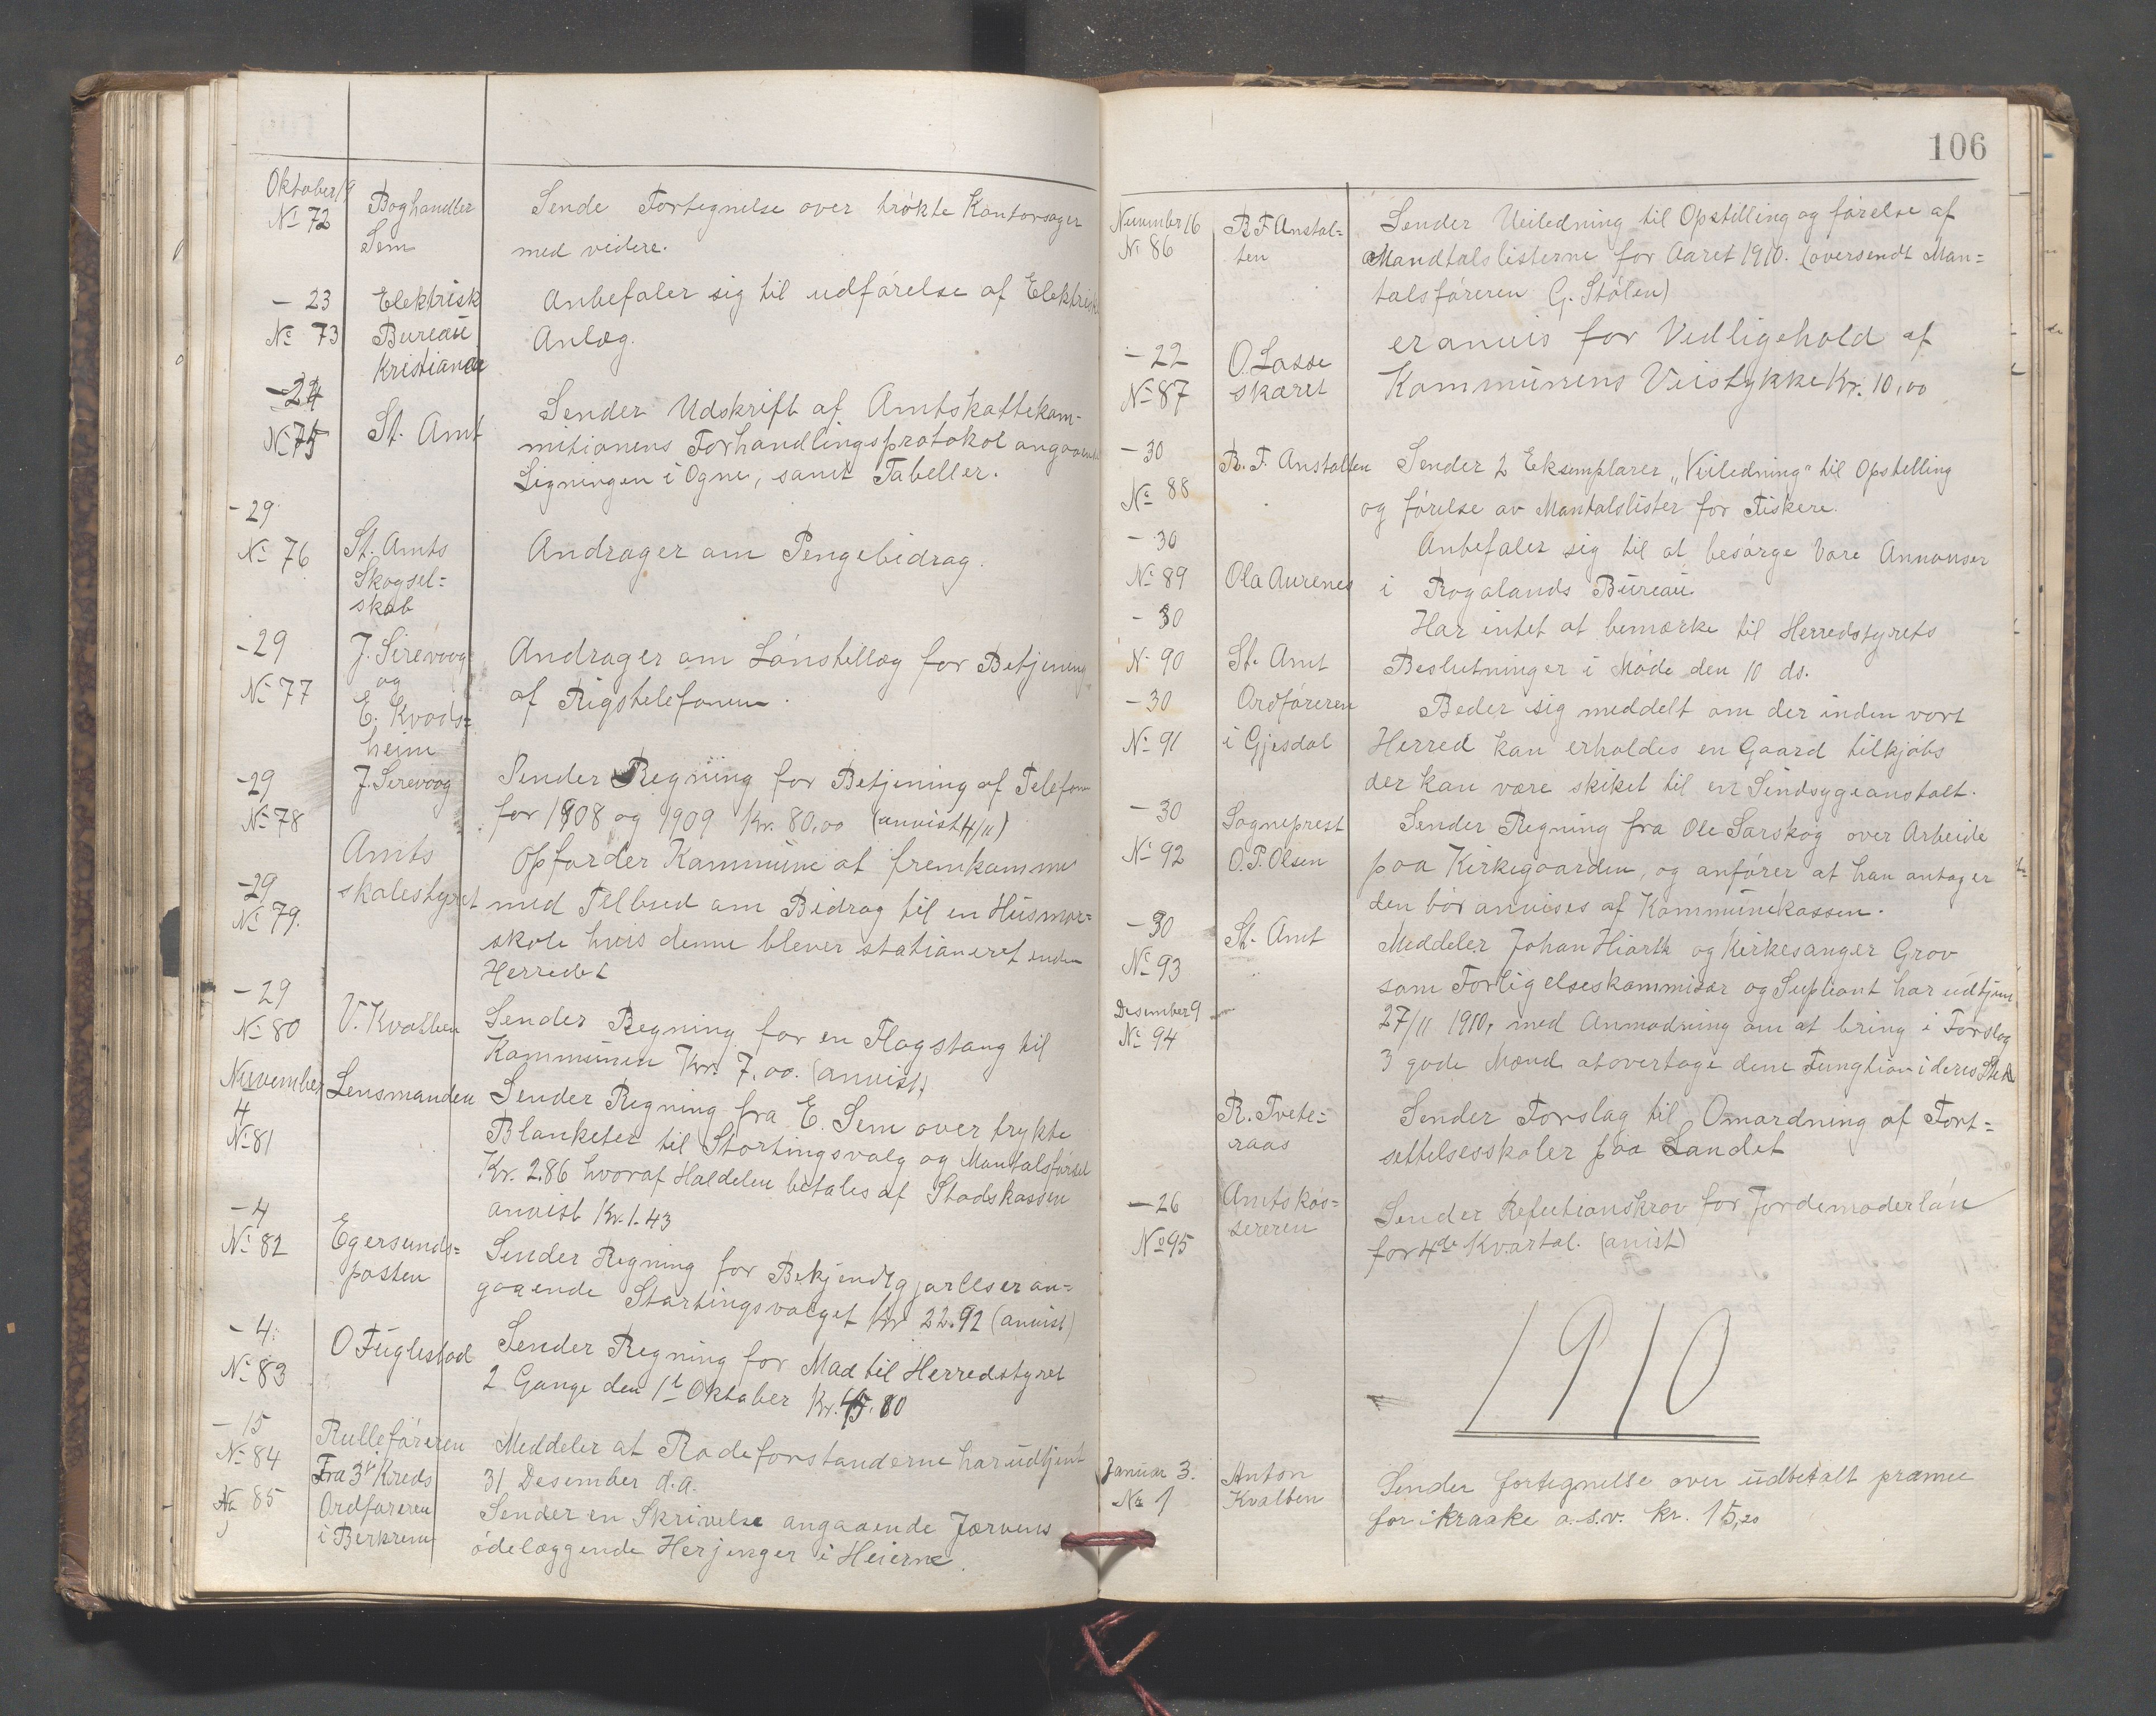 Oktober 19 Boghandler Sende Fortegnelse over trøkte Kontorsager
No 72 Sem med videre.
- 23 Elektrisk Anbefaler sig til udførelse af Elektrisk
No 73 Bureau Anlæg.
Kristiania
- 24 St. Amt Sender Udskrift af Amtskattekom-
No 75 mitionens Forhandlingsprotokol angaaende
Ligningen i Ogne, samt Tabeller.
- 29
No 76 St. Amts Andrager om Pengebidrag.
Skogsel-
skab
- 29 J. Sirevaag Andrager om Lønstillæg for Betjening
No 77 og af Rigstelefonen.
E. Kvads-
heim
- 29 J. Sirevaag Sender Regning for Betjening af Telefon
No 78 for 1908 og 1909 Kr. 80,00 (anvist 4/11)
Amts Opforder Kommune at fremkomme
- 29 skolestyret med Tilbud om Bidrag til en Husmor-
No 79. skole hvis denne blever stationeret inden
Herredet
- 29 V. Kvalben Sender Regning for en Flagstang til
No 80 Kommunen Kr. 7,00. (anvist)
Nuvember Lensmanden Sender Regning fra E. Sem over trykte
4 Blanketer til Stortingsvalg og Mantalsførsel
No 81 Kr. 2.86 hvoraf Haldelen betales af Stadskassen
anvist Kr. 1.43
- 4 Egersunds- Sender Regning for Bekjendtgjørelser an-
No 82 posten gaaende Stortingsvalget Kr 22.92 (anvist)
- 4. O Fuglestad Sender Regning for Mad til Herredstyret
No 83 2 Gange den 1t Oktober Kr. 45.80
- 15 Rulleføreren Meddeler at Rodeforstanderne har udtjent
No 84 Fra 3' Kreds 31 Desember d.a.
No 85 Ordføreren Sender en Skrivelse angaaende Jærvens
i Berkrem ødelæggende Herjenger i Heierne.
106
Nuvember 16 R F Anstal- Sender Veiledning til Opstilling og førelse af
No 86 ten Mandtalslisterne for Aaret 1910. (oversendt Man-
talsføreren G. Stølen)
- 22 O. Lasse eranvis for Vedligehold af
No 87 skaret Kommunens Veistykke Kr. 10,00
- 30 R. F. Anstalten Sender 2 Eksemplarer "Veiledning" til Opstilling
No 88 og førelse av Mantalslister for Fiskere.
- 30 Anbefaler sig til at besørge Vore Annonser
No 89 Ola Aurenes i Rogalands Bureau.
- 30 Har intet at bemærke til Herredstyrets
No 90 St. Amt Beslutninger i Møde den 10 ds.
- 30 Ordføreren Beder sig meddelt om der inden vort
No 91 i Gjesdal Herred kan erholdes en Gaard tilkjøbs
der kan være skiket til en Sindsygeanstalt.
- 30 Sogneprest Sender Regning fra Ole Sarskog over Arbeide
No 92 O. P. Olsen paa Kirkegaarden, og anfører at han antager
den bør anvises af Kommunekassen.
- 30 St. Amt Meddeler Johan Hiorth og Kirkesanger Grov
No 93 som Forligelseskommisær og Supliant har udtjent
Desember 9 27/11 1910, med Anmodning om at bring i Forslag
No 94 3 gode Mænd at overtage dene Fungtion i deres Sted
R. Tvete- Sender Forslag til Omordning af Fort-
raas settelsesskoler paa Landet
- 26 Amtskas- Sender Refutionskrav for Jordemoderløn
No 95 sereren for 4de Kvartal. (anist)
1910
Januar 3. Anton Sender fortegnelse over udbetalt præmie
No 1 Kvalben for kraake o.s.v. kr. 15,20